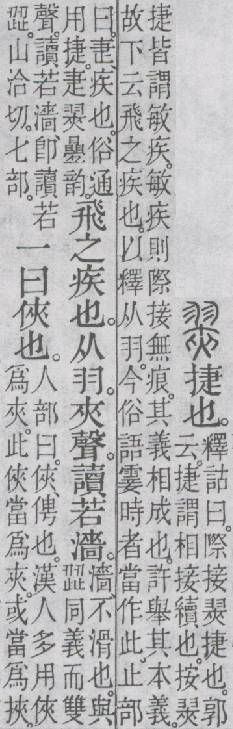 翜捷也。釋詁曰。際接翜捷也。郭
云。捷謂相接續也。按翜
捷皆謂敏疾。敏疾則際接無痕。其義相成也。許舉其本義。
故下云飛之疾也。以釋从羽。今俗語霎時者當作此。止部
曰。疌、疾也。俗通
用捷。疌翜曡韵。
飛之疾也。从羽。夾聲。讀若濇。
濇、不滑也。與
歰同義而雙
聲。讀若濇、卽讀若
歰。山洽切。七部。
一曰俠也。
人部曰。俠、俜也。漢人多用俠
爲夾。此俠當爲夾。或當爲挾。